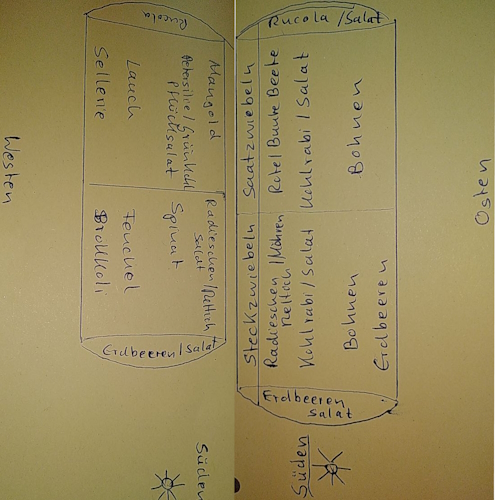 Rucola
Mangold
Petersilie/Grünkohl
Pflücksalat
Lauch
Sellerie
Radieschen/Rettich
Salat
Spinat
Fenchel
Brokkoli
Erdbeeren/Salat
Westen
Süden
Rucola/Salat
Saatzwiebeln
Rote/Bunte Beete
Kohlrabi/Salat
Bohnen
Steckzwiebeln
Radieschen/Möhren
Rettich
Kohlrabi/Salat
Bohnen
Erdbeeren
Erdbeeren
Salat
Osten
Süden